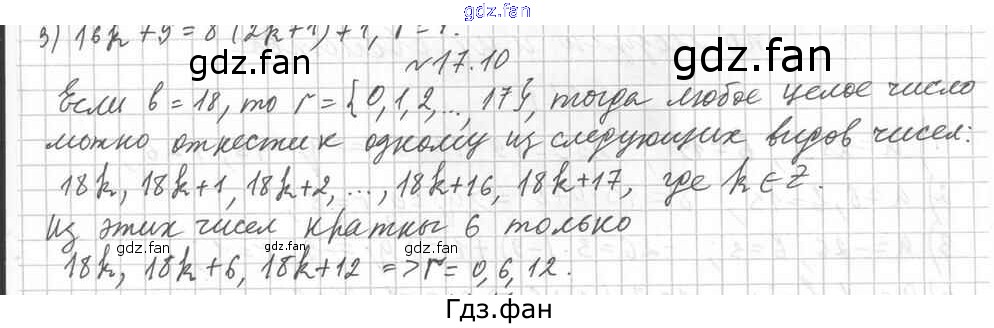 gdz.fan
3) 16k+9=8(2k+1)+1, r=1.
gdz.fan
№17.10
gdz.fan
Если b=18, то r={0,1,2,..., 17}, тогда любое целое число
можно отнести к одному из следующих видов чисел:
18k, 18k+1, 18k+2, ..., 18k+16, 18k+17, где k∈Z.
Из этих чисел кратны 6 только
gdz.fan gdz.fan gdz.fan gdz.fan
18k, 18k+6, 18k+12 => r=0,6,12.
Гдз.фан